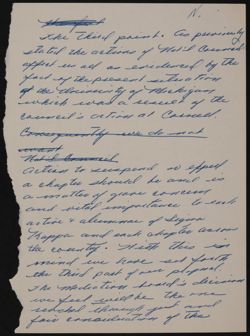 N.
The third point. As previously
stated the actions of Nat'l Council
affect us all as evidenced by the
fact of the present situation
at the University of Michigan
which was a result of the
council's action at Cornell
Consequently we do not
want
Nat'l Council
Action to suspend or expel
a chapter should be and is
a matter of grave concern
and vital importance to each
active & alumnae of Sigma
Kappa and each chapter across
the country. With this in
mind we have set forth
the third part of our proposal.
The Mediation board's decision
we feel will be the one
reached through just and
fair consideration of the